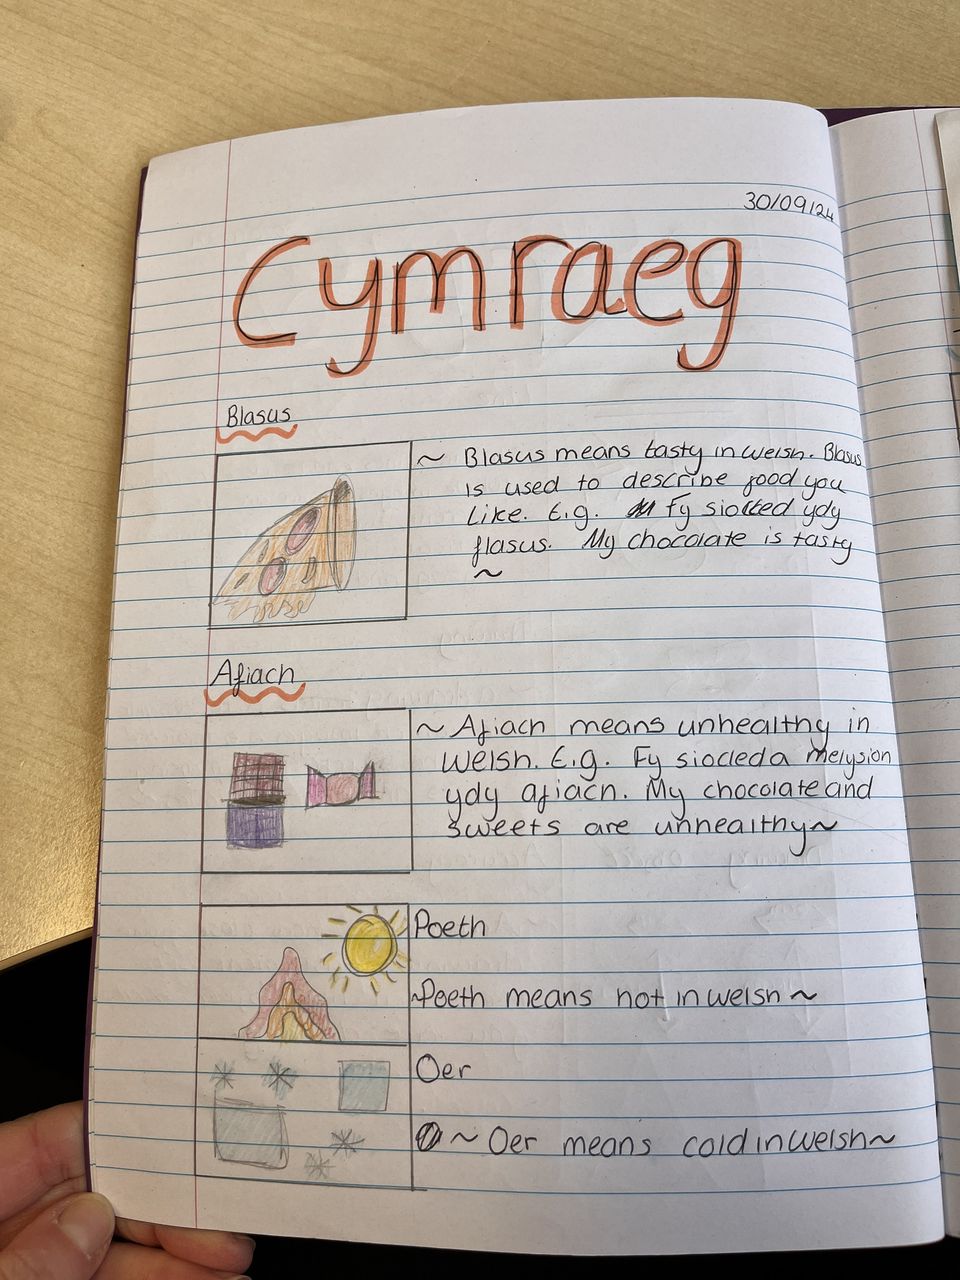 30/09/24
Cymraeg
Blasus
~ Blasus means tasty in welsh. Blasus
is used to describe food you
like. E.g. Fy siocled ydy
flasus. My chocolate is tasty
~
Afiach
~ Afiach means unhealthy in
welsh. E.g. Fy siocled a melysion
ydy afiach. My chocolate and
sweets are unhealthy~
Poeth
~Poeth means hot in welsh ~
Oer
~ Oer means cold in welsh~